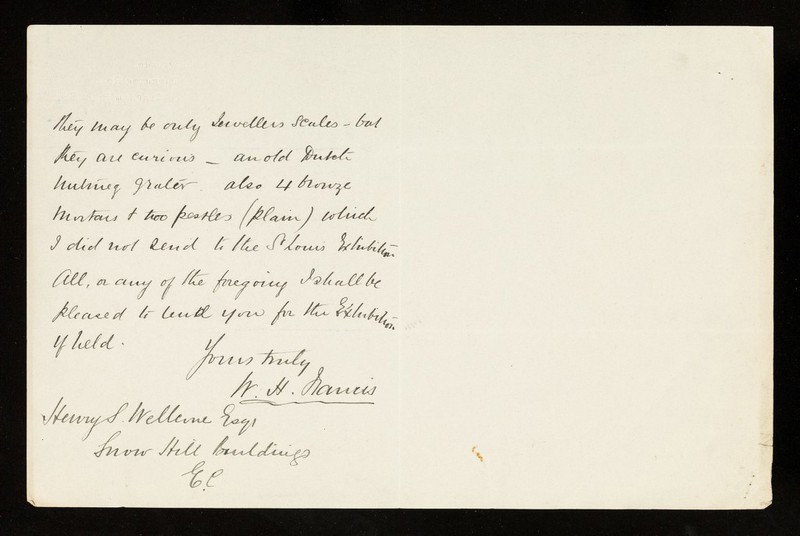 they may be only Jewellers Scales – but
they are curious – an old Dutch
Nutmeg grater. also 4 bronze
Mortars & two pestles (plain) which
I did not send to the St Louis Exhibition
All, or any of the foregoing I shall be
pleased to lend you for the Exhibition
if held.
Yours truly
W. H. Francis
Henry S. Wellcome Esqr
Snow Hill Buildings
E.C